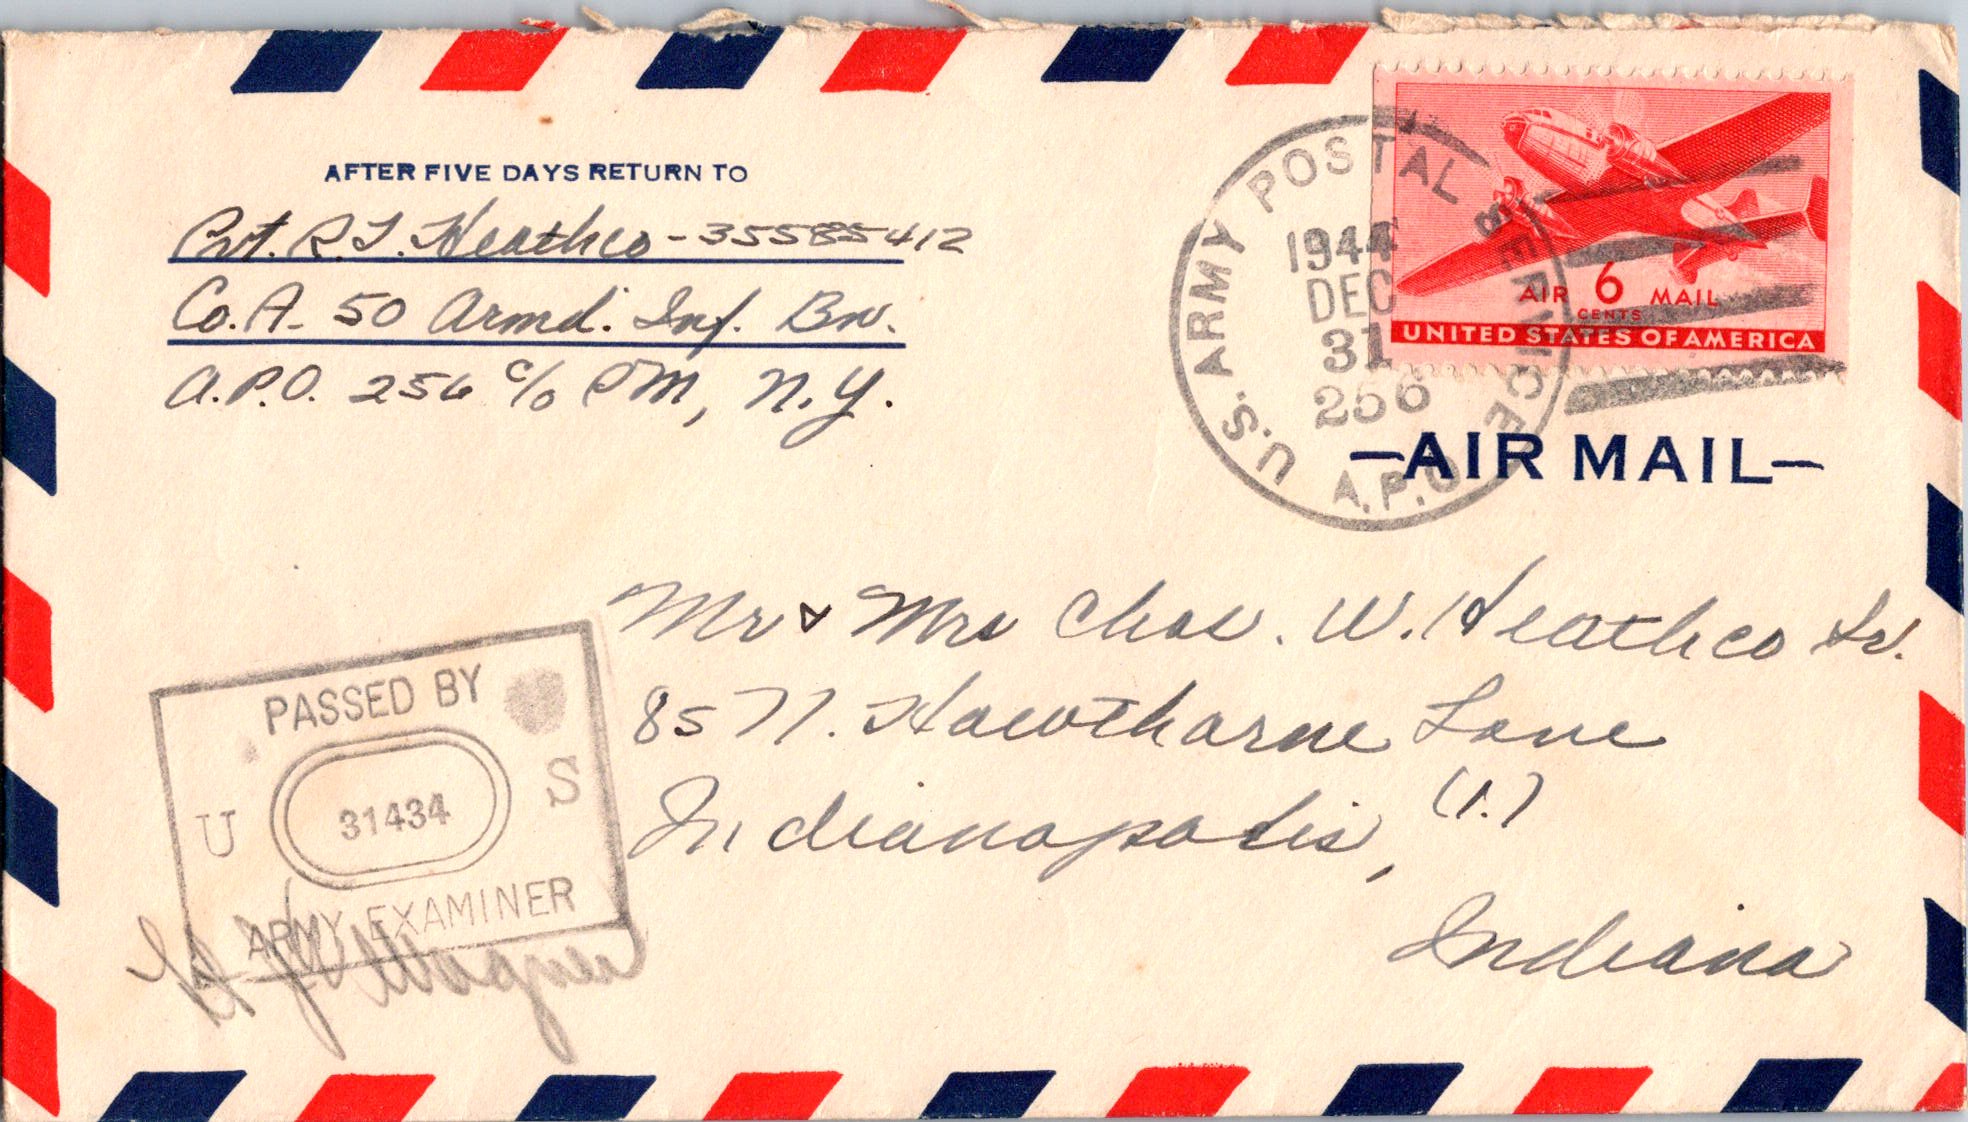 AFTER FIVE DAYS RETURN TO
Pvt. R.J. Heathco - 35585412
Co. A - 50 Armd. Inf. Bn.
A.P.O. 256 c/o PM, N.Y.
U.S. ARMY POSTAL SERVICE
A.P.O.
1944
DEC
31
256
AIR 6 MAIL
CENTS
UNITED STATES OF AMERICA
—AIR MAIL—
Mr & Mrs Chas. W. Heathco Sr.
85 N. Hawthorne Lane
Indianapolis, (1.)
Indiana
PASSED BY
U 31434 S
ARMY EXAMINER